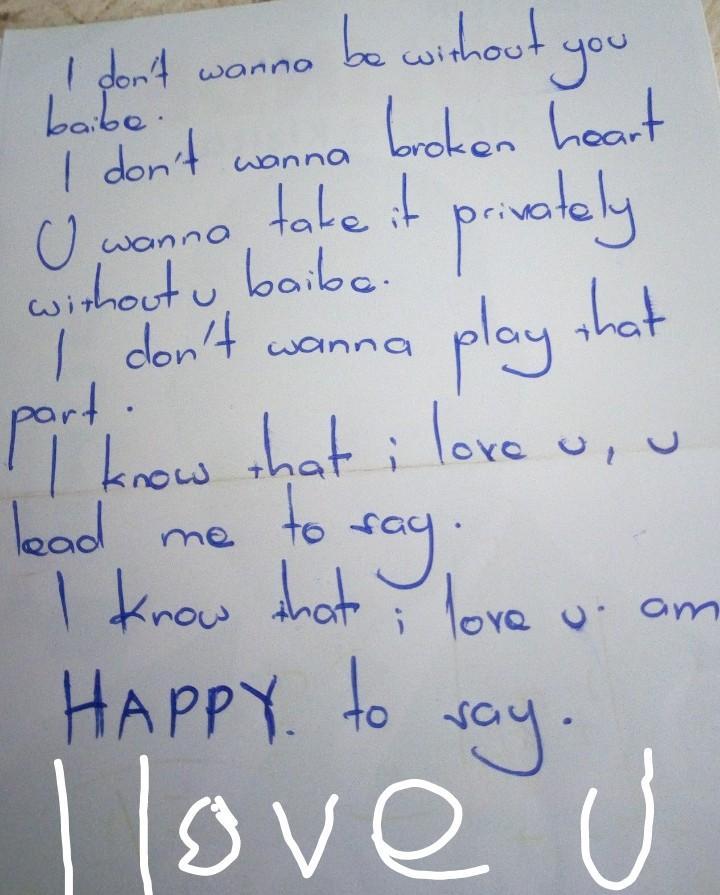 I don't wanna be without you
baibe.
I don't wanna broken heart
U wanna take it privately
without u baibe.
I don't wanna play that
part.
I know that i love u, u
lead me to say.
I know that i love u. am
HAPPY. to say.
I love U